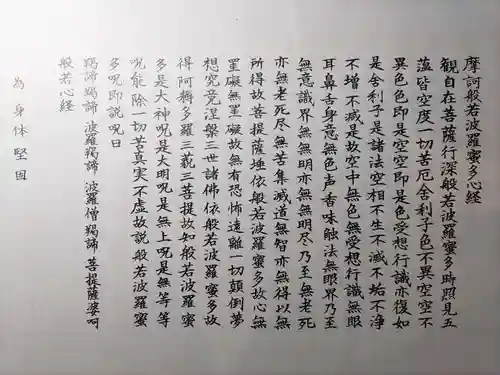 摩訶般若波羅蜜多心経
観自在菩薩行深般若波羅蜜多時照見五
蘊皆空度一切苦厄舎利子色不異空空不
異色色即是空空即是色受想行識亦復如
是舎利子是諸法空相不生不滅不垢不浄
不増不減是故空中無色無受想行識無眼
耳鼻舌身意無色声香味触法無眼界乃至
無意識界無無明亦無無明尽乃至無老死
亦無老死尽無苦集滅道無智亦無得以無
所得故菩提薩埵依般若波羅蜜多故心無
罣礙無罣礙故無有恐怖遠離一切顛倒夢
想究竟涅槃三世諸佛依般若波羅蜜多故
得阿耨多羅三藐三菩提故知般若波羅蜜
多是大神呪是大明呪是無上呪是無等等
呪能除一切苦真実不虚故説般若波羅蜜
多呪即説呪曰
羯諦羯諦 波羅羯諦 波羅僧羯諦 菩提薩婆呵
般若心経
為 身体堅固